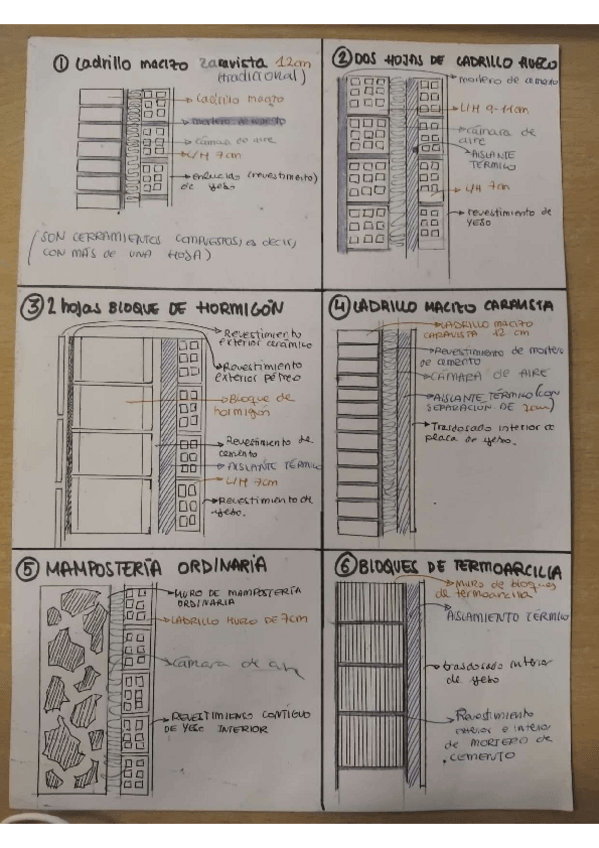 ① Ladrillo macizo caravista 12cm
(tradicional)
→ Ladrillo macizo
→ mortero de cemento
→ cámara de aire
→ L/H 7cm
→ enlucido (revestimiento)
de yeso
(SON CERRAMIENTOS COMPUESTOS, es decir,
CON MÁS DE UNA HOJA)
② DOS HOJAS DE LADRILLO HUECO
mortero de cemento
→ L/H 9-11cm
→ cámara de
aire
→ AISLANTE
TÉRMICO
→ L/H 7cm
→ revestimiento de
yeso
③ 2 hojas BLOQUE DE HORMIGÓN
→ Revestimiento
exterior cerámico
→ Revestimiento
exterior pétreo
→ Bloque de
hormigón
Revestimiento de
cemento
→ AISLANTE TÉRMICO
→ L/H 7cm
→ Revestimiento de
yeso.
④ LADRILLO MACIZO CARAVISTA
→ LADRILLO MACIZO
CARAVISTA 12 cm
→ Revestimiento de mortero
de cemento
→ CÁMARA DE AIRE
→ AISLANTE TÉRMICO (CON
SEPARACIÓN DE 2cm)
→ Trasdosado interior de
placa de yeso.
⑤ MAMPOSTERÍA ORDINARIA
→ MURO DE MAMPOSTERÍA
ORDINARIA
→ LADRILLO HUECO DE 7cm
→ cámara de aire
→ REVESTIMIENTO CONTIGUO
DE YESO INTERIOR
⑥ BLOQUES DE TERMOARCILLA
→ Muro de bloques
de termoarcilla
→ AISLAMIENTO TÉRMICO
→ trasdosado interior
de yeso
→ Revestimiento
exterior e interior
de MORTERO DE
CEMENTO